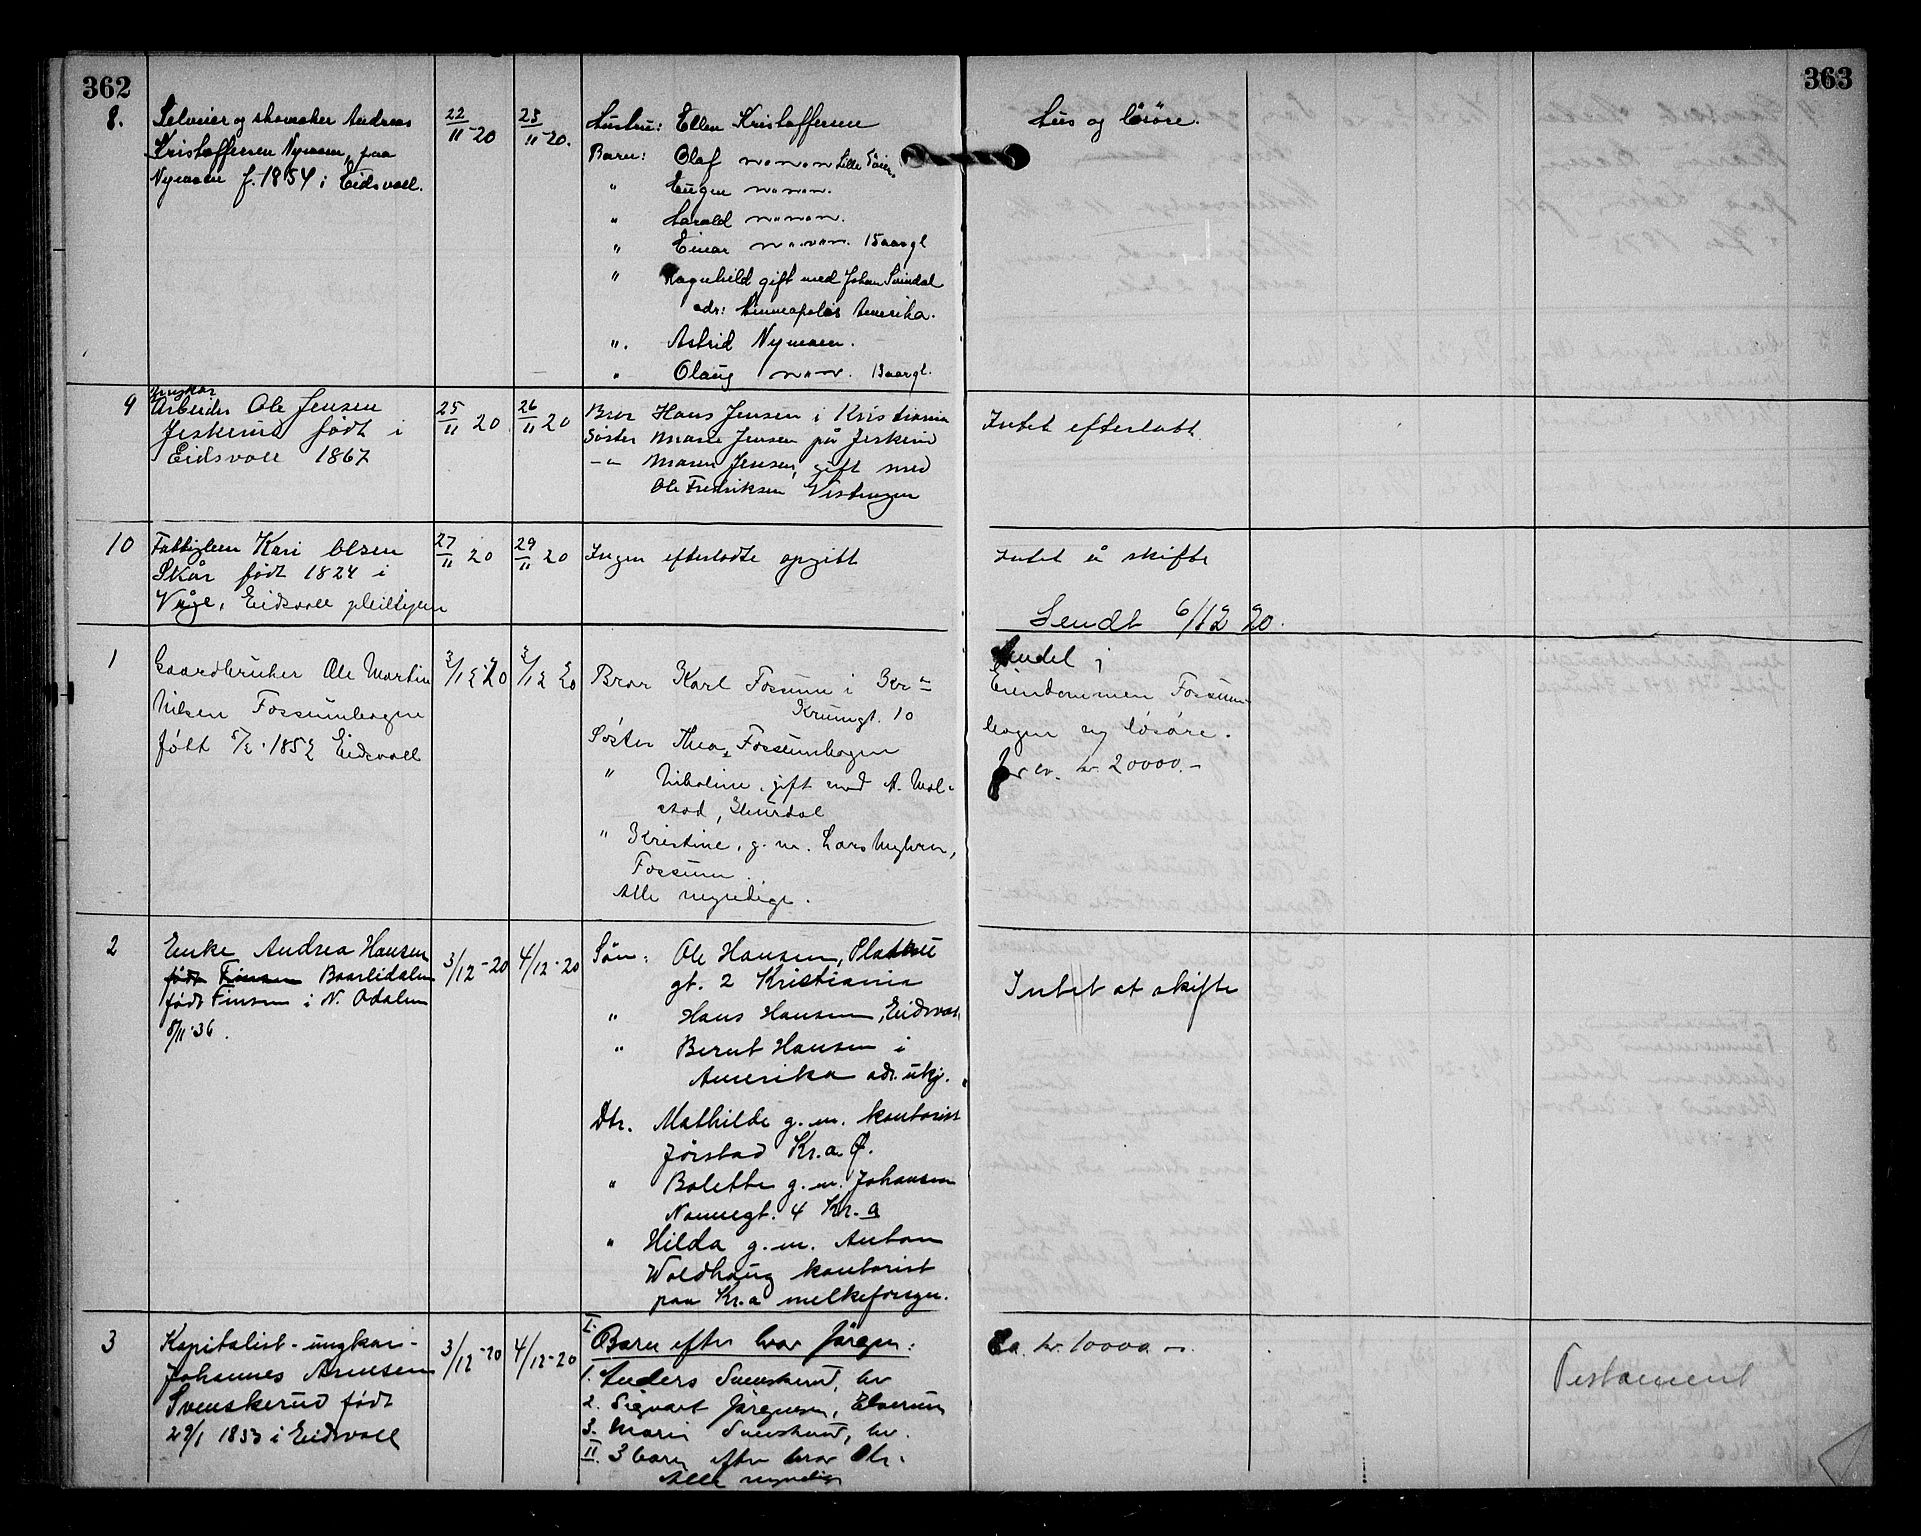 362
363
8.
Selveier og skomaker Andreas
Kristoffersen Nymoen, paa
Nymoen f. 1854 i Eidsvoll.
22/11-20
23/11-20.
Hustru: Ellen Kristoffersen
Barn: Olaf
" Eugen
" Harald
" Einar 15 aar gl
" Ragnhild gift med Johan
adr: Minneapolis Amerika.
". Astrid Nymoen.
" Olaug 13 aar gl.
Hus og lösöre.
9
Ungkar
Arbeider Ole Jensen
Jeskerud født i
Eidsvoll 1867
25/11 20
26/11 20
Bror Hans Jensen i Kristiania
Søster Marie Jensen på Jeskerud
-"- Maren Jensen, gift med
Ole Fredriksen
Intet efterlatt.
10
Fattiglem Kari Olsen
Skår født 1824 i
Våge, Eidsvoll pleiehjem
27/11 20
29/11 20
Ingen efterlodte opgitt
Intet å skifte
Sendt 6/12 20.
1
Gaardbruker Ole Martin
Nilsen Fossumhagen
født 5/2-1852 Eidsvoll
3/12 20
3/12 20
Bror Karl Fossum i Kra
Krumgt. 10
Søster Thea, Fossumhagen
" Nikoline, gift med A. Wol-
stad, Hurdal
" Kristine, g. m. Lars Myhrer,
Fossum.
Alle myndige.
Andel i
Eiendommen Fossum-
hagen og lösöre.
for ca. kr. 20000.-
2
Enke Andrea Hansen
født Finsen Baarlidalen
født Finsen i N. Odalen
5/11-36.
3/12-20
4/12-20
Søn: Ole Hansen,
gt. 2 Kristiania
" Hans Hansen, Eidsvoll
" Bernt Hansen i
Amerika adr. ukj.
Dtr. Mathilde g. m. kontorist
Jørstad Kr.a Ø.
" Bolette g. m. Johansen
Nannegt. 4 Kr.a
" Hilda g. m. Anton
Woldhaug kontorist
paa Kr.a melkeforsyn.
Intet at skifte
3
Kapitalist - ungkar -
Johannes Arnesen
Svenskerud født
29/1 1853 i Eidsvoll
3/12-20
4/12-20
I. Barn efter bror Jørgen:
1. Anders Svenskerud, hv
2. Sigvart Jørgensen, Elverum
3. Marie Svenskerud, hv.
II. 3 barn efter bror Ole.
Alle myndige
Ca. kr. 10000.-
Testament